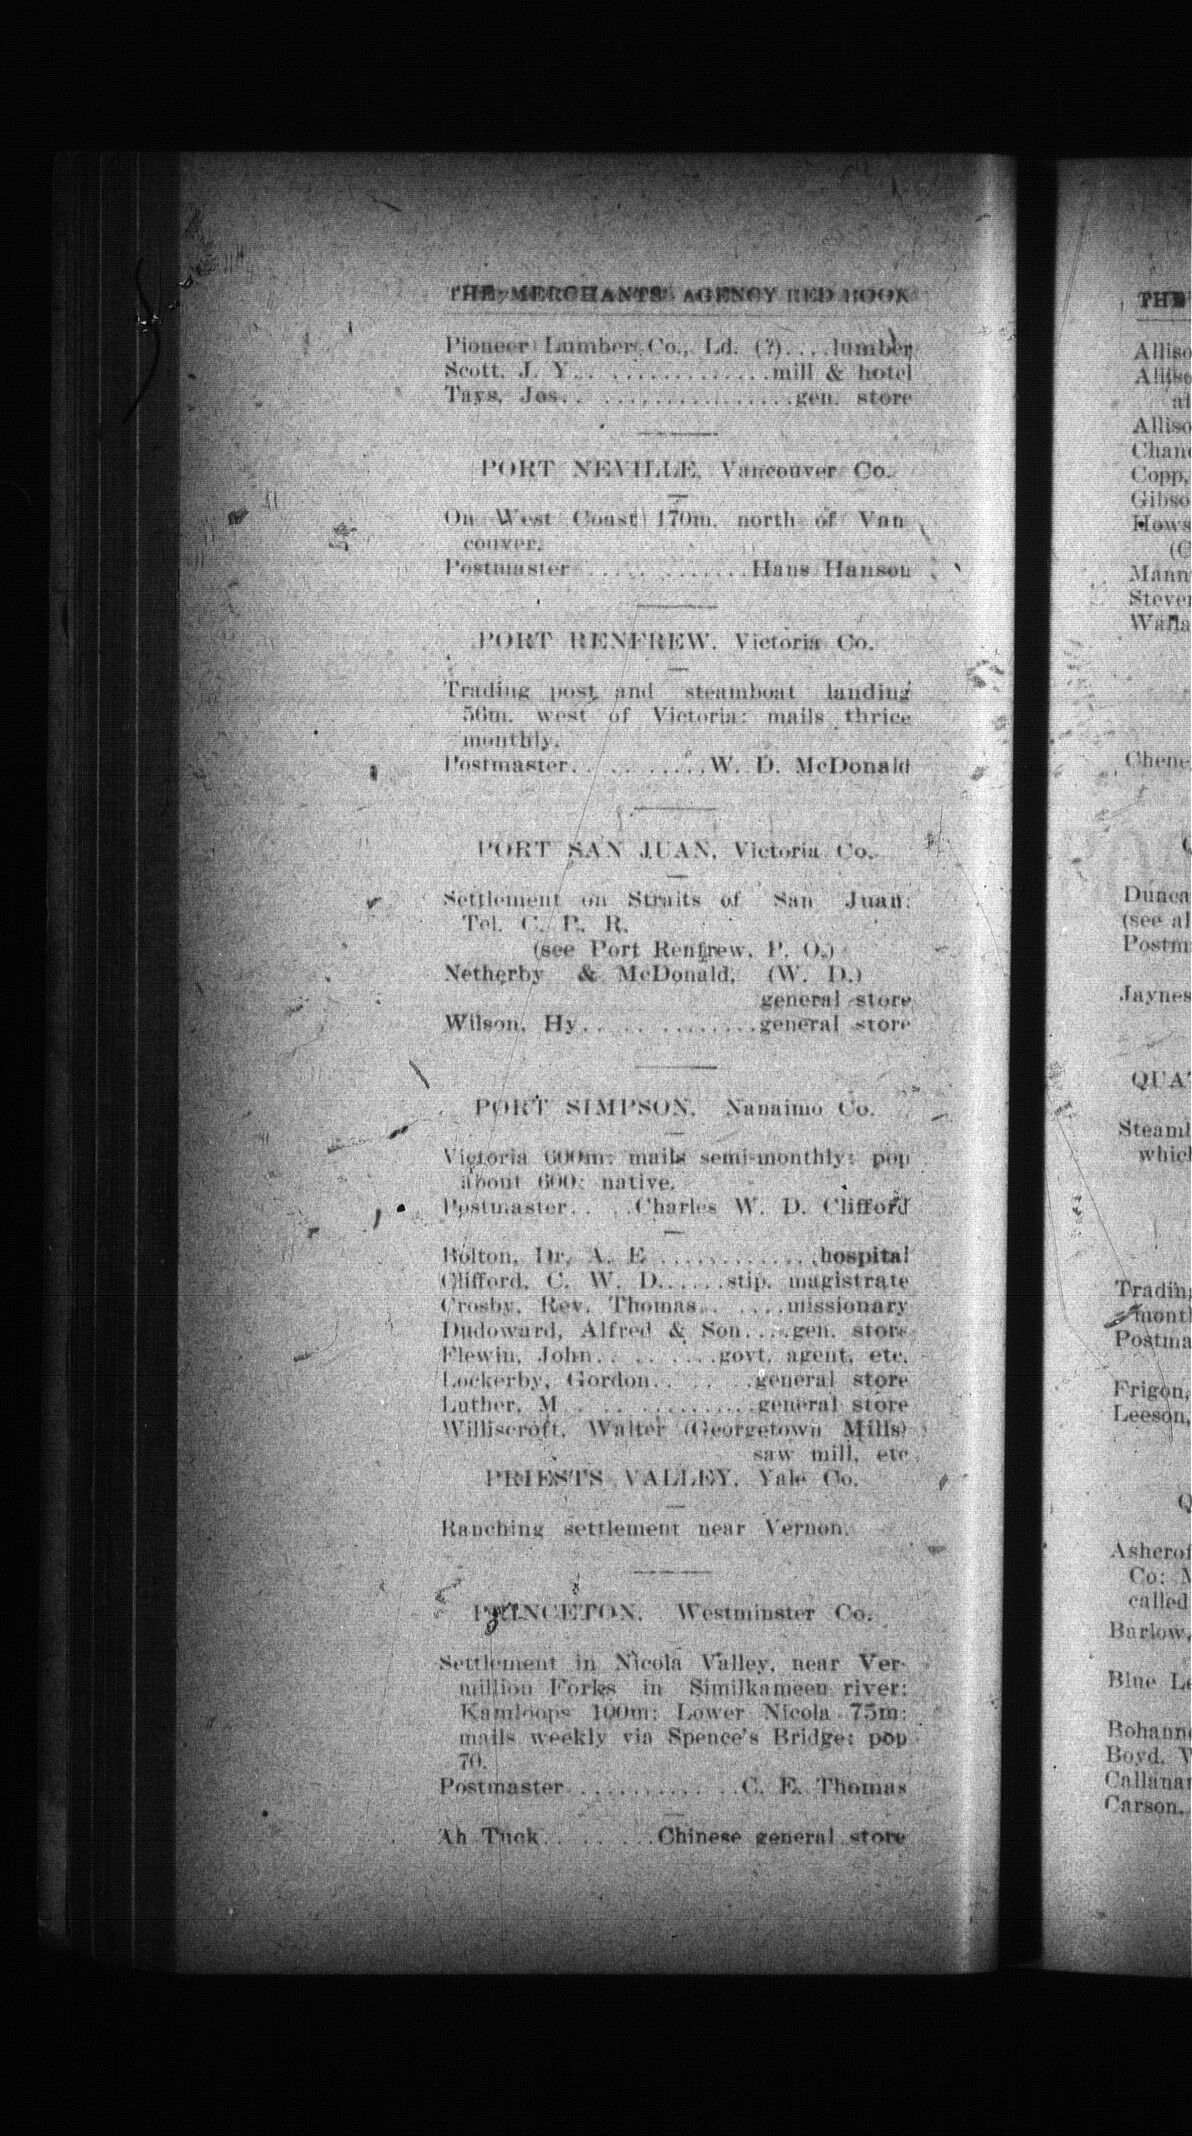 THE MERCHANTS' AGENCY RED BOOK
Pioneer Lumber Co., Ld. (?)....lumber
Scott, J. Y.. ..............mill & hotel
Tays, Jos.. ................gen. store
PORT NEVILLE, Vancouver Co.
On West Coast 170m. north of Van
couver.
Postmaster..............Hans Hanson
PORT RENFREW, Victoria Co.
Trading post and steamboat landing
56m. west of Victoria: mails thrice
monthly.
Postmaster...........W. D. McDonald
PORT SAN JUAN, Victoria Co.
Settlement on Straits of San Juan:
Tel. C. P. R.
(see Port Renfrew, P. O.)
Netherby & McDonald, (W. D.)
general store
Wilson, Hy..............general store
PORT SIMPSON, Nanaimo Co.
Victoria 600m: mails semi-monthly: pop
about 600: native.
Postmaster.. ..Charles W. D. Clifford
Bolton, Dr. A. E..............hospital
Clifford, C. W. D......stip. magistrate
Crosby, Rev. Thomas.. ....missionary
Dudoward, Alfred & Son.....gen. store
Flewin, John.. .......govt. agent, etc.
Lockerby, Gordon.. .....general store
Luther, M.. .............general store
Williscroft, Walter (Georgetown Mills)
saw mill, etc
PRIESTS VALLEY, Yale Co.
Ranching settlement near Vernon.
PRINCETON, Westminster Co.
Settlement in Nicola Valley, near Ver-
million Forks in Similkameen river:
Kamloops 100m: Lower Nicola 75m:
mails weekly via Spence's Bridge: pop
70.
Postmaster..............C. E. Thomas
Ah Tuck.. ......Chinese general store
THE
Alliso
Alliso
al
Alliso
Chan
Copp,
Gibso
Hows
(C
Mann
Steve
Walla
Chene
Dunca
(see al
Postm
Jaynes
QUA
Steaml
which
Trading
month
Postma
Frigon,
Leeson,
Q
Ashcrof
Co: M
called
Barlow,
Blue Le
Bohanno
Boyd, W
Callanan
Carson,